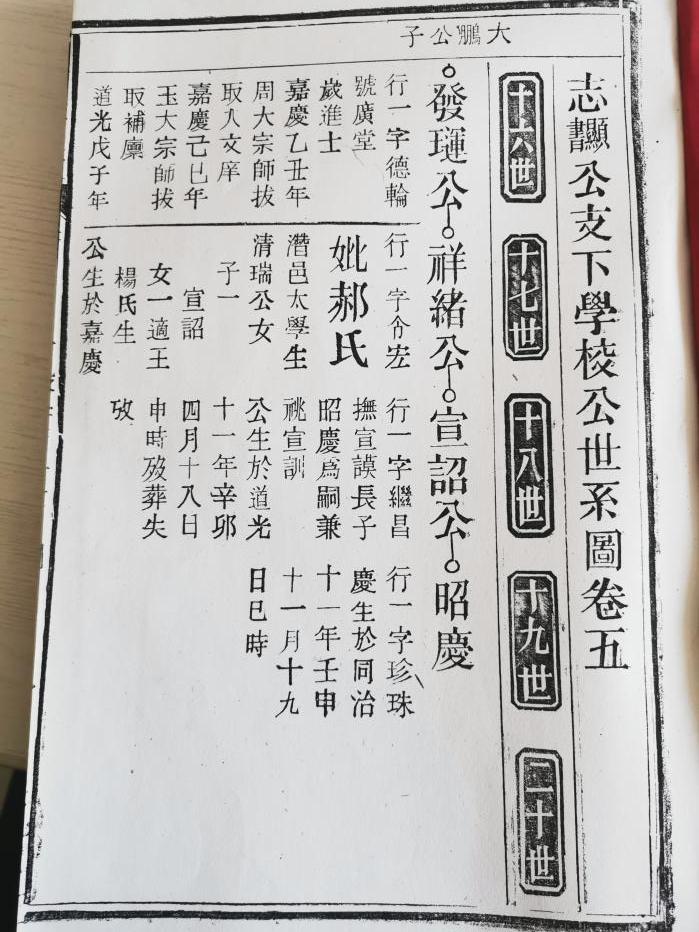 大鵬公子
志顯公支下學校公世系圖卷五
十六世
十七世
十八世
十九世
二十世
發璉公
祥緒公
宣詔公
昭慶
行一字德輪
號廣堂
歲進士
嘉慶乙丑年
周大宗師拔
取入文庠
嘉慶己巳年
玉大宗師拔
取補廩
道光戊子年
行一字介宏
妣郝氏
潛邑太學生
清瑞公女
子一
宣詔
女一適王
楊氏生
公生於嘉慶
行一字繼昌
撫宣謨長子
昭慶為嗣兼
祧宣訓
公生於道光
十一年辛卯
四月十八日
申時歿葬失
攷
行一字珍珠
慶生於同治
十一年壬申
十一月十九
日巳時